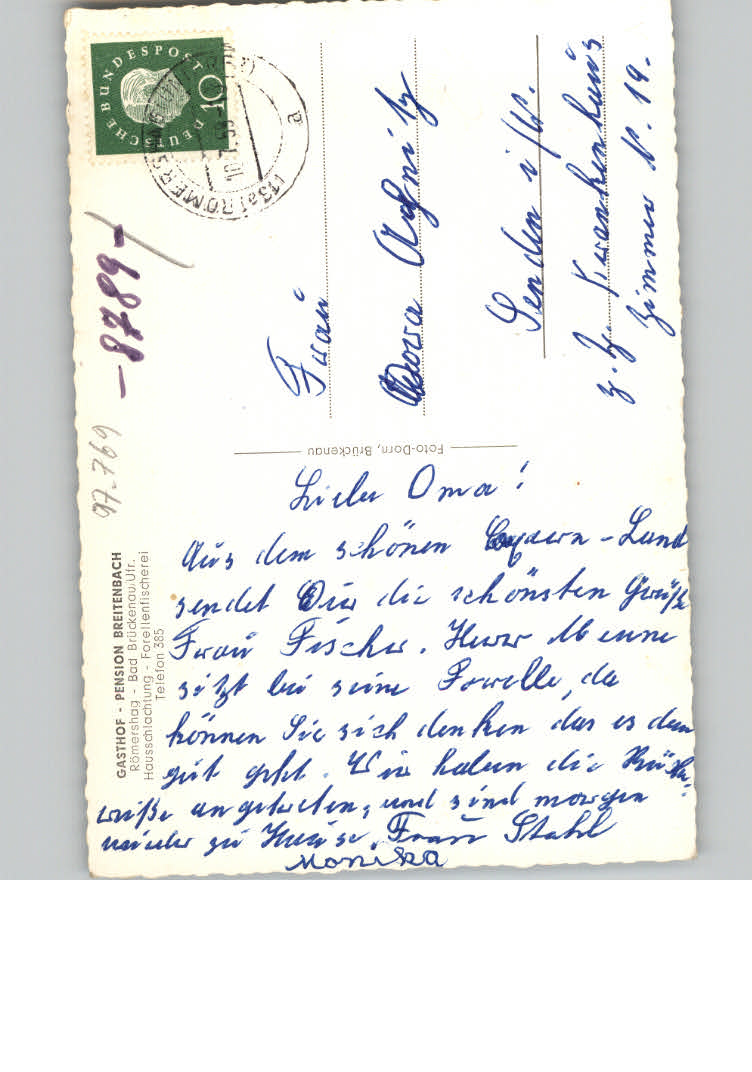 DEUTSCHE BUNDESPOST
10
(13a) RÖMERSHAG
a
-8789-
97.769
Frau
Agnitz
Senden i/W.
z. Z. Krankenhaus
Zimmer N. 19.
Foto-Dorn, Brückenau
GASTHOF - PENSION BREITENBACH
Römershag - Bad Brückenau/Ufr.
Hausschlachtung - Forellenfischerei
Telefon 385
Liebe Oma!
Aus dem schönen Bayern-Land
sendet Dir die schönsten Grüße
Frau Fischer. Herr Menne
sitzt bei seine Forelle, da
können Sie sich denken das es dem
gut geht. Wir haben die Rück-
reiße angetreten, und sind morgen
wieder zu Hause. Frau Stahl
Monika